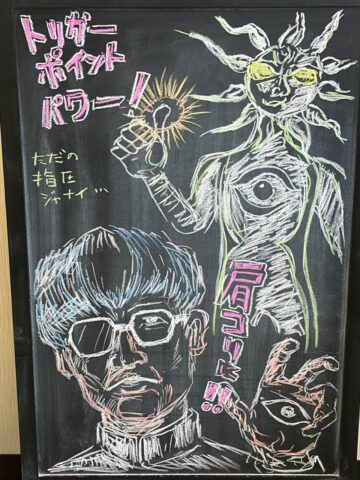 トリガー
ポイント
パワー!
ただの
指圧
ジャナイ…
肩コリに!!